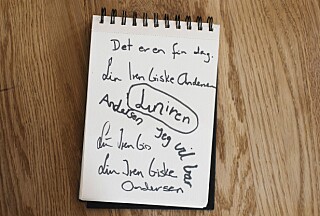 Det er en fin dag.
Lin Iren Giske Andersen
Liniren
Andersen
Jeg vil bar
Lin Iren Gis
Lin Iren Giske
Andersen